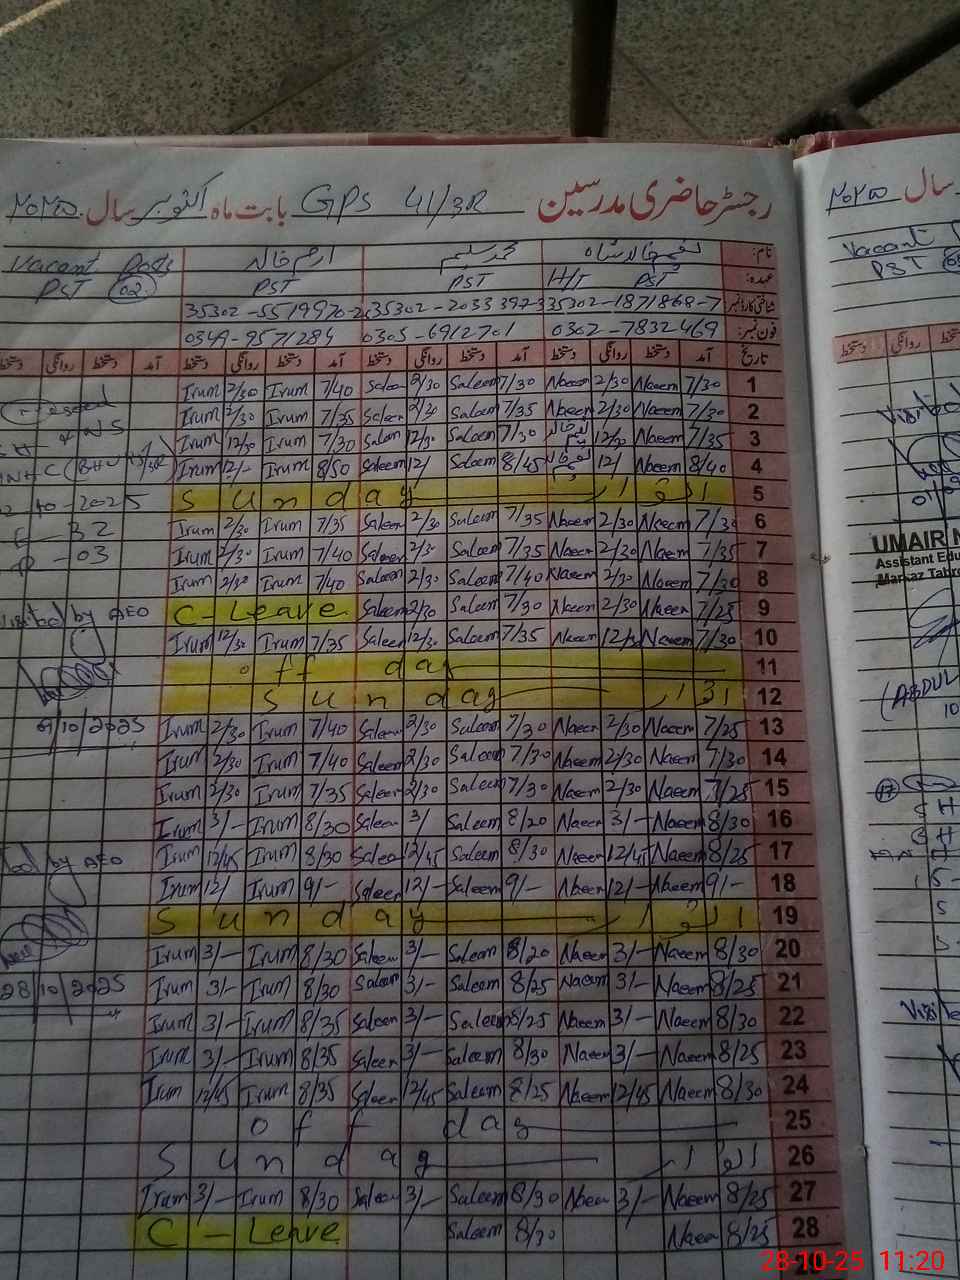 رجسٹر حاضری مدرسین GPS 41/3R بابت ماہ اکتوبر سال ۲۰۲۵
نام: نعیم خالد شاہ محمد سلیم ارم خالد Vacant Posts
عہدہ: H/T PST PST PST PST 02
شناختی کارڈ نمبر 35302-1871868-7
فون نمبر: 0302-7832469 0305-6912701 0349-9571284
تاریخ آمد دستخط روانگی دستخط آمد دستخط روانگی دستخط آمد دستخط روانگی دستخط آمد دستخط روانگی دستخط
1 7/30 Naeem 2/30 Naeem 7/30 Saleem 2/30 Saleem 7/40 Irum 2/30 Irum
2 7/30 Naeem 2/30 Naeem 7/35 Saleem 2/30 Saleem 7/35 Irum 2/30 Irum
3 7/35 Naeem 12/30 7/30 Saleem 12/30 Saleem 7/30 Irum 12/30 Irum
4 8/40 Naeem 12/ 8/45 Saleem 12/ Saleem 8/50 Irum 12/- Irum
5 اتوار Sunday
6 7/30 Naeem 2/30 Naeem 7/35 Saleem 2/30 Saleem 7/35 Irum 2/30 Irum
7 7/35 Naeem 2/30 Naeem 7/35 Saleem 2/30 Saleem 7/40 Irum 2/30 Irum
8 7/30 Naeem 2/30 Naeem 7/40 Saleem 2/30 Saleem 7/40 Irum 2/30 Irum
9 7/25 Naeem 2/30 Naeem 7/30 Saleem 2/30 Saleem C-Leave
10 7/30 Naeem 12/30 Naeem 7/35 Saleem 12/30 Saleem 7/35 Irum 12/30 Irum
11 off day
12 اتوار Sunday
13 7/25 Naeem 2/30 Naeem 7/30 Saleem 2/30 Saleem 7/40 Irum 2/30 Irum
14 7/30 Naeem 2/30 Naeem 7/30 Saleem 2/30 Saleem 7/40 Irum 2/30 Irum
15 7/25 Naeem 2/30 Naeem 7/30 Saleem 2/30 Saleem 7/35 Irum 2/30 Irum
16 8/30 Naeem 3/- Naeem 8/20 Saleem 3/ Saleem 8/30 Irum 3/- Irum
17 8/25 Naeem 12/45 Naeem 8/30 Saleem 12/45 Saleem 8/30 Irum 12/45 Irum
18 9/- Naeem 12/- Naeem 9/- Saleem 12/- Saleem 9/- Irum 12/ Irum
19 اتوار Sunday
20 8/30 Naeem 3/- Naeem 8/20 Saleem 3/- Saleem 8/30 Irum 3/- Irum
21 8/25 Naeem 3/- Naeem 8/25 Saleem 3/- Saleem 8/30 Irum 3/- Irum
22 8/30 Naeem 3/- Naeem 8/25 Saleem 3/- Saleem 8/35 Irum 3/- Irum
23 8/25 Naeem 3/- Naeem 8/30 Saleem 3/- Saleem 8/35 Irum 3/- Irum
24 8/30 Naeem 12/45 Naeem 8/25 Saleem 12/45 Saleem 8/35 Irum 12/45 Irum
25 off day
26 اتوار Sunday
27 8/25 Naeem 3/- Naeem 8/30 Saleem 3/- Saleem 8/30 Irum 3/- Irum
28 8/25 Naeem 8/30 Saleem C-Leave
by AEO
10/2025
by AEO
28/10/2025
سال ۲۰۲۵
Vacant
PST
روانگی دستخط
UMAIR
Assistant
Markaz
(ABDUL
17
28-10-25 11:20